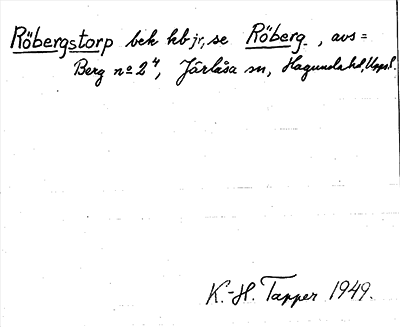 Röbergstorp bek kbjr, se Röberg, avs=
Berg no 2⁴, Järlåsa sn, Hagunda hd, Upps l.
K.-H. Tapper 1949.